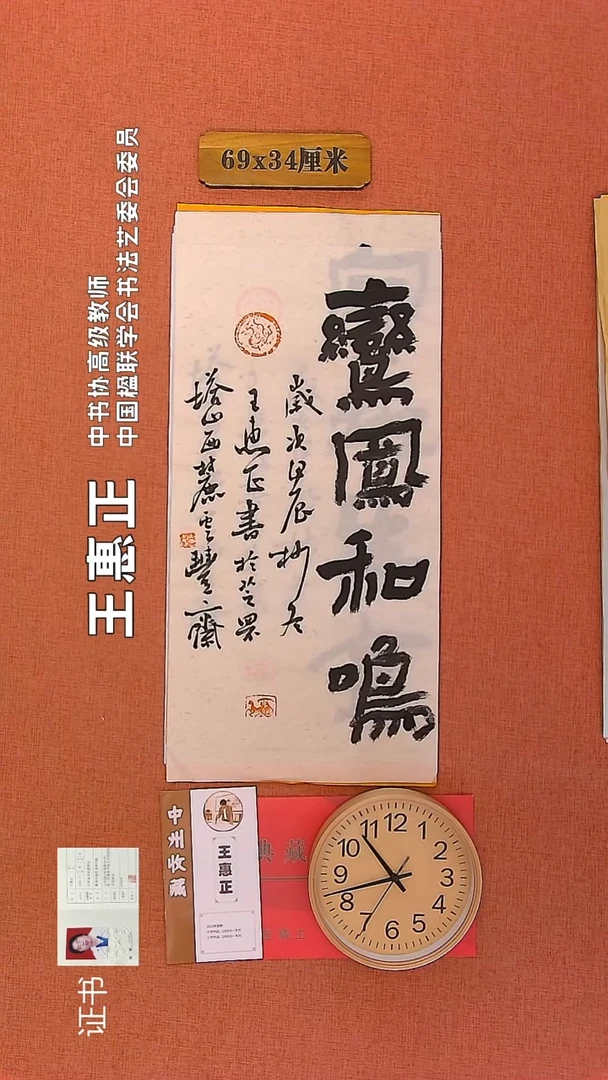 69x34厘米
鸞鳳和鳴
歲次甲辰秋冬
王惠正書於芝罘
塔山西麓雲豐齋
中书协高级教师
中国楹联学会书法艺委会委员
王惠正
证书
中州收藏
王惠正
典藏
12
1
2
3
4
5
6
7
8
9
10
11